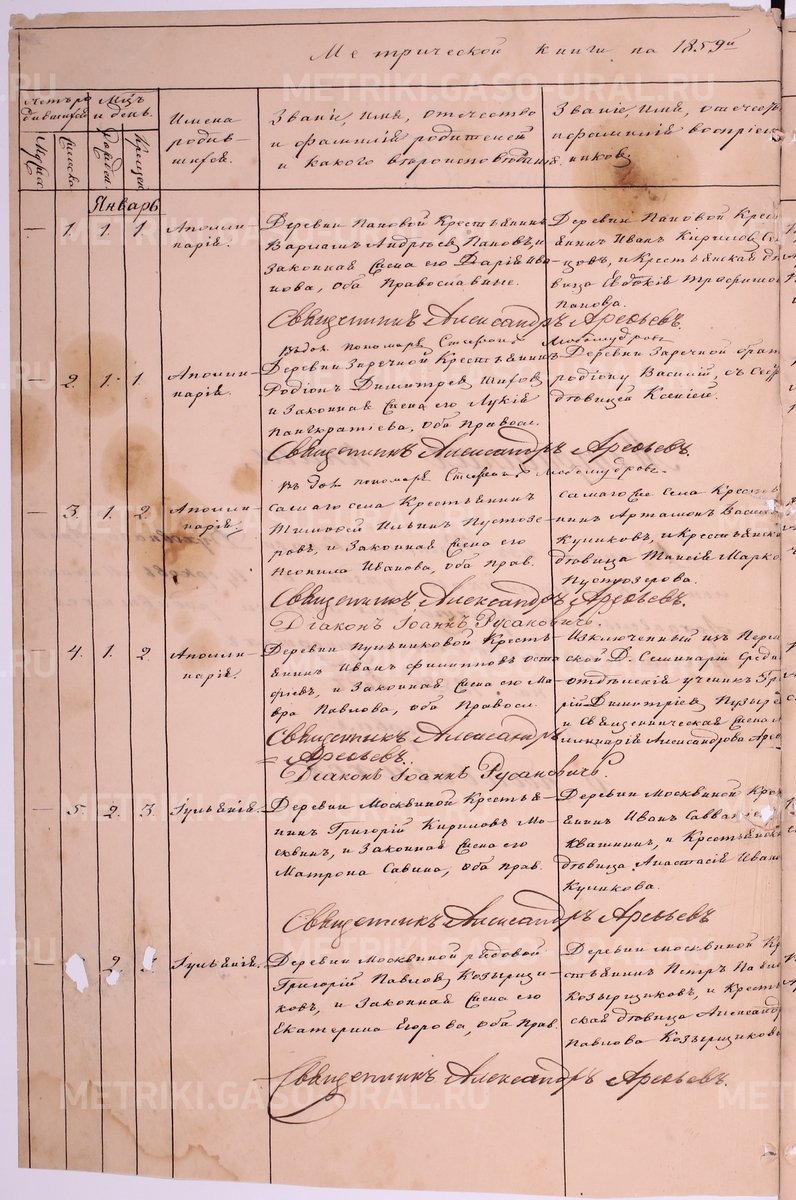 Метрической книги на 1859й
Счетъ ро
дившихся
Мѣс.
и день.
Имена
родив-
шихся.
Званіе, имя, отечество
и фамилія родителей
и какого вѣроисповѣданія.
Званіе, имя, отечес
и фамилія воспріем-
никовъ
Женска
Рожден
Крещен
Январь
— 1. 1. 1. Аполли-
нарія.
Деревни Пановой Крестьянинъ
Варлаамъ Андрѣевъ Пановъ, и
Законная Жена его Дарія Ива-
нова, оба Православные.
Деревни Пановой Крес
янинъ Иванъ Кириловъ
цовъ, и Крестьянская дѣ
вица Евдокія Трофимо
Панова.
Священникъ Александръ Арефьевъ.
Въ дол. пономаря Стефанъ Любомудровъ
— 2. 1. 1. Аполли-
нарія.
Деревни Заречной Крестьянинъ
Родіонъ Димитріевъ
и Законная Жена его Лукія
Панкратіева, оба Правосл.
Деревни Заречной брат
родіону Василій, съ
дѣвицей Ксеніей.
Священникъ Александръ Арефьевъ.
Въ дол. пономаря Стефанъ Любомудровъ
— 3. 1. 2. Аполли-
нарія.
самаго села Крестьянинъ
Тимофей Ильинъ Пустозе-
ровъ, и Законная Жена его
Неонила Иванова, оба прав.
самаго же села Крест
нинъ Артамонъ Васил
Куликовъ, и Крестьянска
дѣвица Таисія Марко
Пустозерова.
Священникъ Александръ Арефьевъ.
Діаконъ Іоаннъ Русановичъ.
— 4. 1. 2. Аполли-
нарія.
Деревни Кресть-
янинъ Иванъ Филипповъ Оста
фіевъ, и Законная Жена его Ма-
вра Павлова, оба Правосл.
Изключенный изъ Перм
ской Д. Семинаріи Средн
отдѣленія ученикъ Гри
рій Димитріевъ Пузырё
и Священническая Жена
линарія Александрова Аре
Священникъ Александръ
Арефьевъ.
Діаконъ Іоаннъ Русановичъ.
— 5. 2. 3. Іуліанія.
Деревни Москвиной Крестья-
нинъ Григорій Кириловъ Мо-
сквинъ, и Законная Жена его
Матрона Савина, оба Прав.
Деревни Москвиной Кре
янинъ Иванъ Савва
Квашнинъ, и Крестьянск
дѣвица Анастасія Ивано
Куликова.
Священникъ Александръ Арефьевъ
— 2. Іуліанія.
Деревни Москвиной рядовой
Григорій Павловъ Козырщи-
ковъ, и Законная Жена его
Екатерина Егорова, оба Прав.
Деревни Москвиной Кр
стьянинъ Петръ Павло
Козырщиковъ, и Кресть
ская дѣвица Александр
Павлова Козырщикова
Священникъ Александръ Арефьевъ.
METRIKI.GASOTURAL.RU